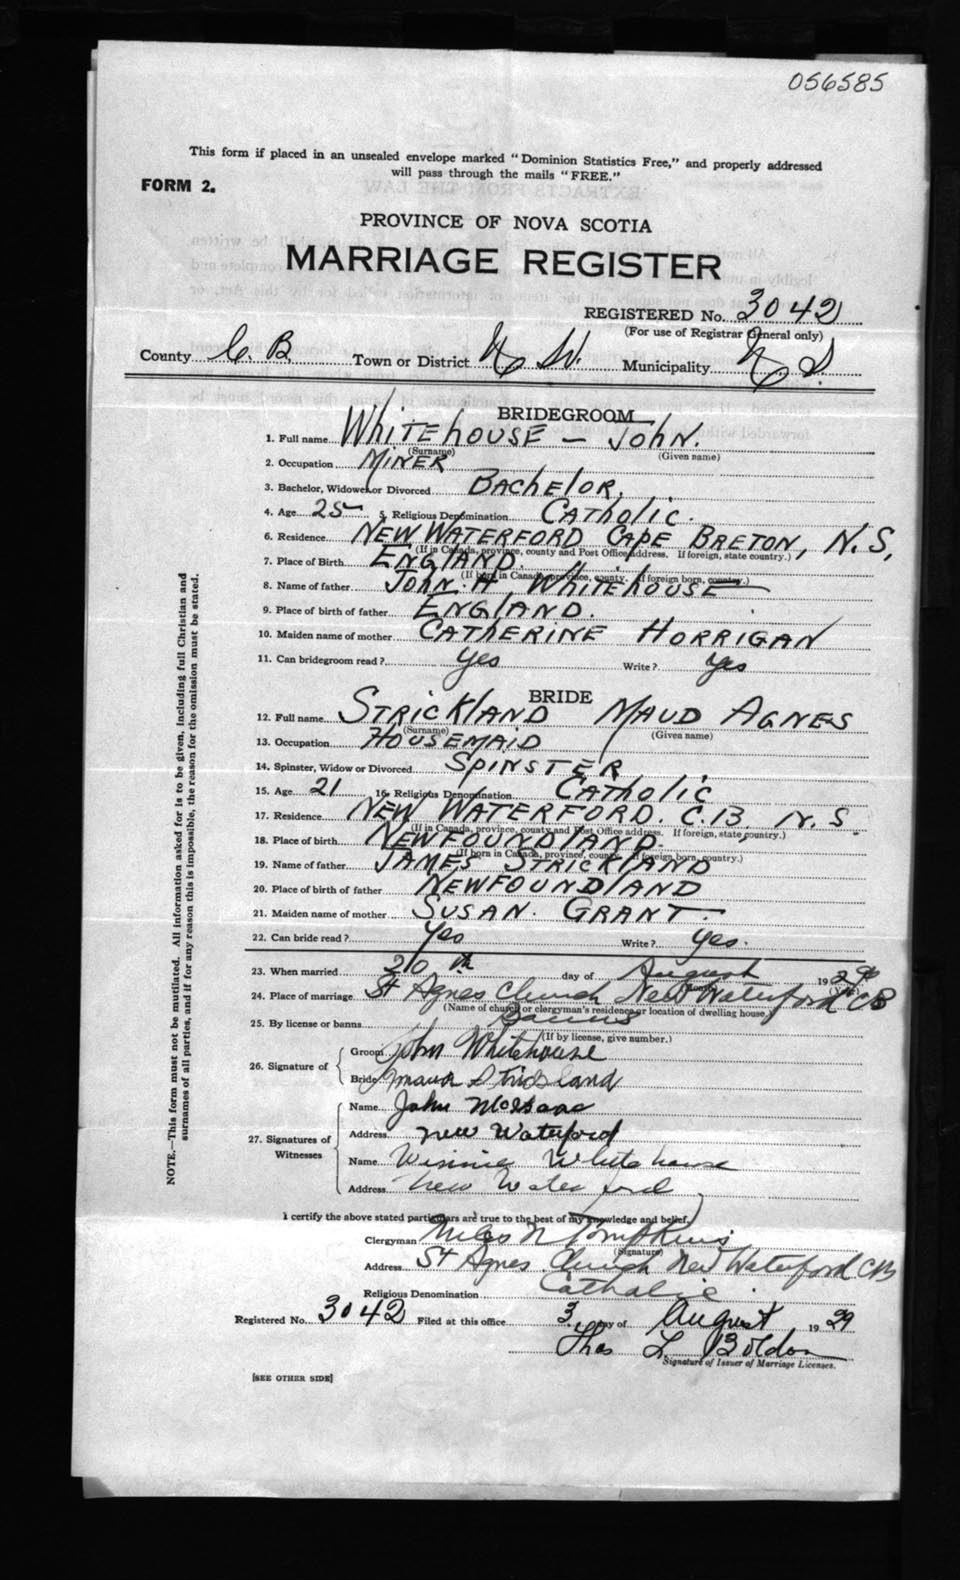 056585
This form if placed in an unsealed envelope marked "Dominion Statistics Free," and properly addressed
will pass through the mails "FREE."
FORM 2.
PROVINCE OF NOVA SCOTIA
MARRIAGE REGISTER
REGISTERED No. 3042
(For use of Registrar General only)
County C. B. Town or District N W. Municipality N S.
BRIDEGROOM
1. Full name WHITEHOUSE – JOHN.
(Surname) (Given name)
2. Occupation MINER
3. Bachelor, Widower or Divorced BACHELOR.
4. Age 25 5. Religious Denomination CATHOLIC.
6. Residence NEW WATERFORD CAPE BRETON, N.S,
(If in Canada, province, county and Post Office address. If foreign, state country.)
7. Place of Birth ENGLAND.
(If born in Canada, province, county. If foreign born, country.)
8. Name of father JOHN. H WHITEHOUSE
9. Place of birth of father ENGLAND.
10. Maiden name of mother CATHERINE HORRIGAN
11. Can bridegroom read? yes Write? yes
BRIDE
12. Full name STRICKLAND MAUD AGNES
(Surname) (Given name)
13. Occupation HOUSEMAID
14. Spinster, Widow or Divorced SPINSTER
15. Age 21 16. Religious Denomination CATHOLIC
17. Residence NEW WATERFORD. C.B. N.S.
(If in Canada, province, county and Post Office address. If foreign, state country.)
18. Place of birth NEWFOUNDLAND.
(If born in Canada, province, county. If foreign born, country.)
19. Name of father JAMES STRICKLAND
20. Place of birth of father NEWFOUNDLAND
21. Maiden name of mother SUSAN. GRANT.
22. Can bride read? yes Write? yes.
23. When married 20th day of August 1929
24. Place of marriage St Agnes Church New Waterford CB
(Name of church or clergyman's residence or location of dwelling house.)
25. By license or banns Banns
(If by license, give number.)
26. Signature of
Groom John Whitehouse
Bride Maud Strickland
27. Signatures of Witnesses
Name John McIsaac
Address New Waterford
Name Winnie Whitehouse
Address New Waterford
I certify the above stated particulars are true to the best of my knowledge and belief,
Clergyman Miles N Tompkins
(Signature)
Address St Agnes Church New Waterford CB
Religious Denomination Catholic
Registered No. 3042 Filed at this office 3 day of August 1929
Thos L Boldon
Signature of Issuer of Marriage Licenses.
[SEE OTHER SIDE]
NOTE.—This form must not be mutilated. All information asked for is to be given, including full Christian and
surnames of all parties, and if for any reason this is impossible, the reason for the omission must be stated.